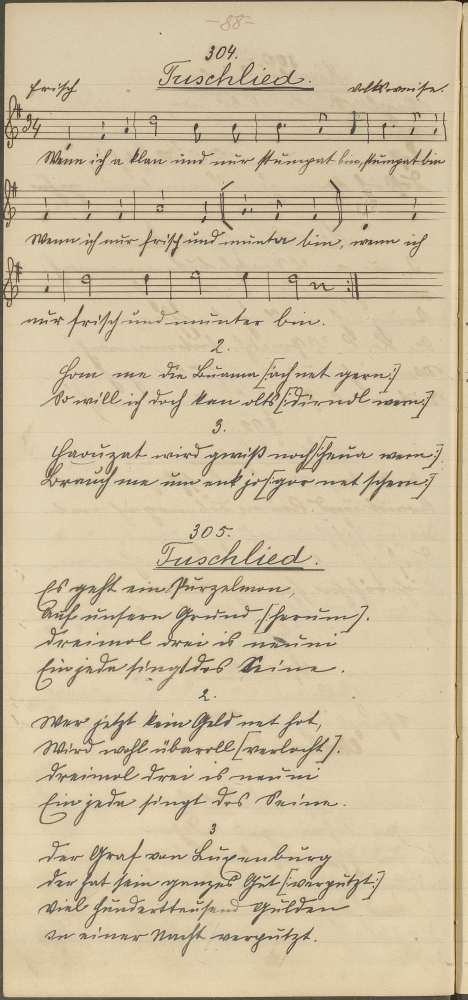 -88-
304.
Tuschlied.
frisch volksweise.
3/4
Wenn ich a klan und nur stumpat bin, stumpat bin
Wenn ich nur frisch und munta bin, wenn ich
nur frisch und munter bin.
2.
Hom me die Buama [:ach net gern:]
So will ich doch kan olts [:Dirndl wern:]
3.
wird gewiß noch [:heua wern:]
Brauch me um enk jo [:gor net schern:]
305.
Tuschlied.
Es geht ein Purzelmon,
Auf unsern Grund [:herum:].
Dreimol drei is neuni
Ein jeda singt das Seine.
2.
Wer jetzt kein Geld net hot,
Wird wohl übaroll [verlocht].
Dreimol drei is neuni
Ein jeda singt das Seine.
3
Der Graf von Luxenburg
Der hat sein ganzes Gut [:verputzt:]
Viel hunderttausend Gulden
In einer Nacht verputzt.